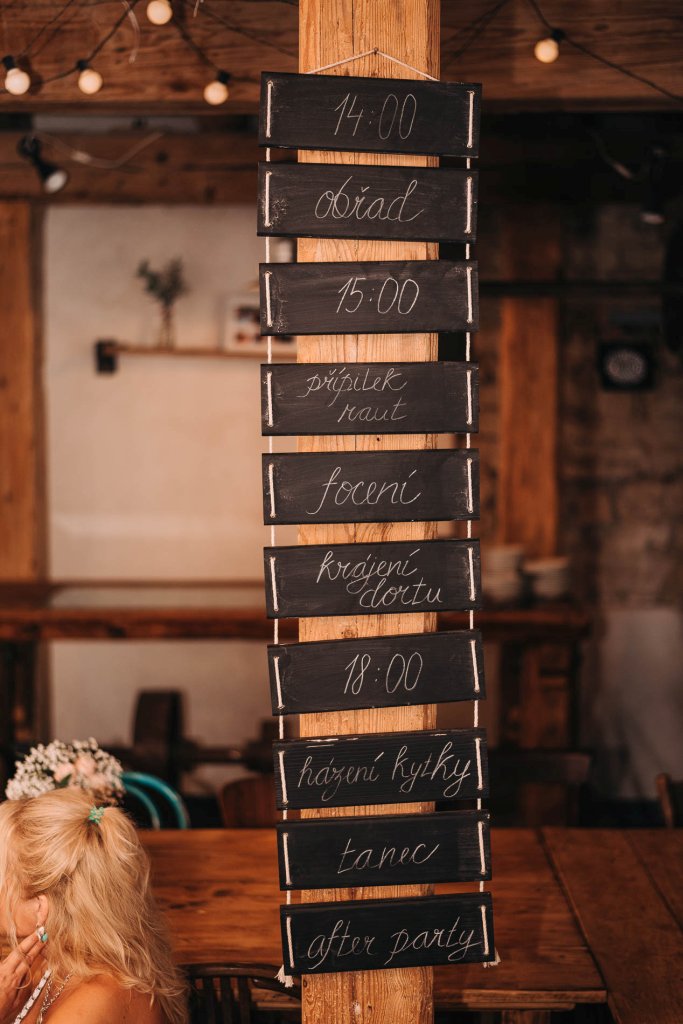 14:00
obřad
15:00
přípitek
raut
focení
krájení
dortu
18:00
házení kytky
tanec
after party